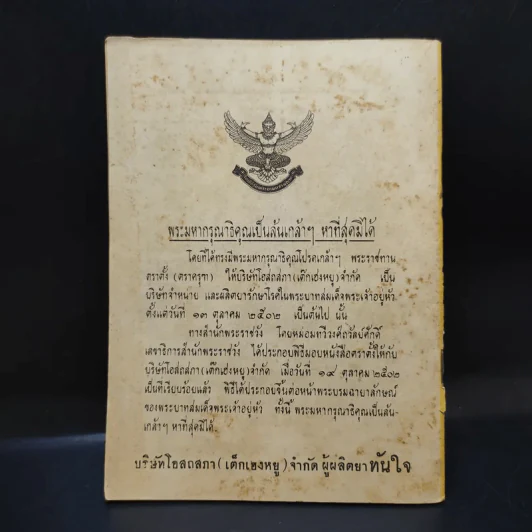 พระมหากรุณาธิคุณเป็นล้นเกล้าฯ หาที่สุดมิได้
โดยที่ได้ทรงมีพระมหากรุณาธิคุณโปรดเกล้าฯ พระราชทาน
ตราตั้ง (ตราครุฑ) ให้บริษัทโอสถสภา (เต๊กเฮงหยู) จำกัด เป็น
บริษัทจำหน่าย และผลิตยารักษาโรคในพระบาทสมเด็จพระเจ้าอยู่หัว
ตั้งแต่วันที่ ๑๓ ตุลาคม ๒๕๐๒ เป็นต้นไป นั้น
ทางสำนักพระราชวัง โดยหม่อมทวีวงศ์ถวัลย์ศักดิ์
เลขาธิการสำนักพระราชวัง ได้ประกอบพิธีมอบหนังสือตราตั้งให้กับ
บริษัทโอสถสภา (เต๊กเฮงหยู) จำกัด เมื่อวันที่ ๑๙ ตุลาคม ๒๕๐๒
เป็นที่เรียบร้อยแล้ว พิธีได้ประกอบขึ้นต่อหน้าพระบรมฉายาลักษณ์
ของพระบาทสมเด็จพระเจ้าอยู่หัว ทั้งนี้ พระมหากรุณาธิคุณเป็นล้น-
เกล้าฯ หาที่สุดมิได้
บริษัทโอสถสภา (เต็กเฮงหยู) จำกัด ผู้ผลิตยาทันใจ